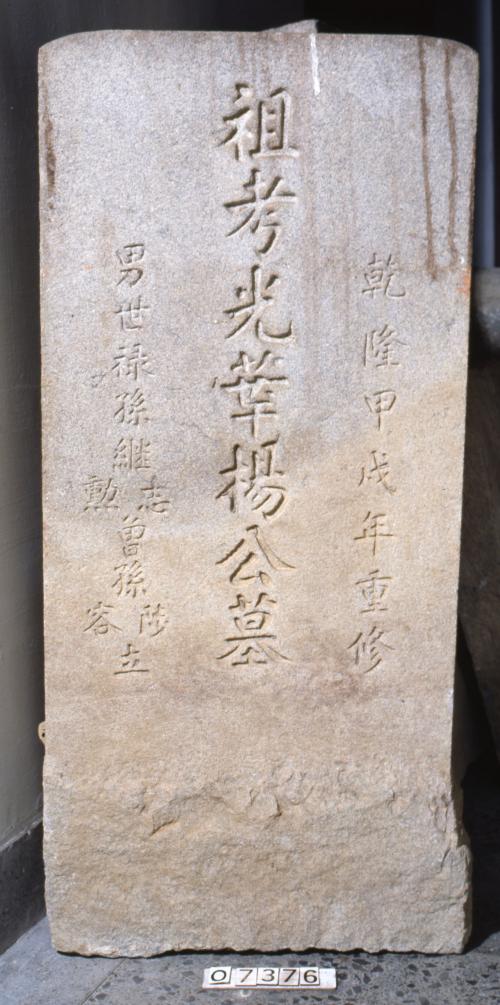 乾隆甲戌年重修
祖考光華楊公墓
男世祿孫繼志勲曾孫陟容立
07376